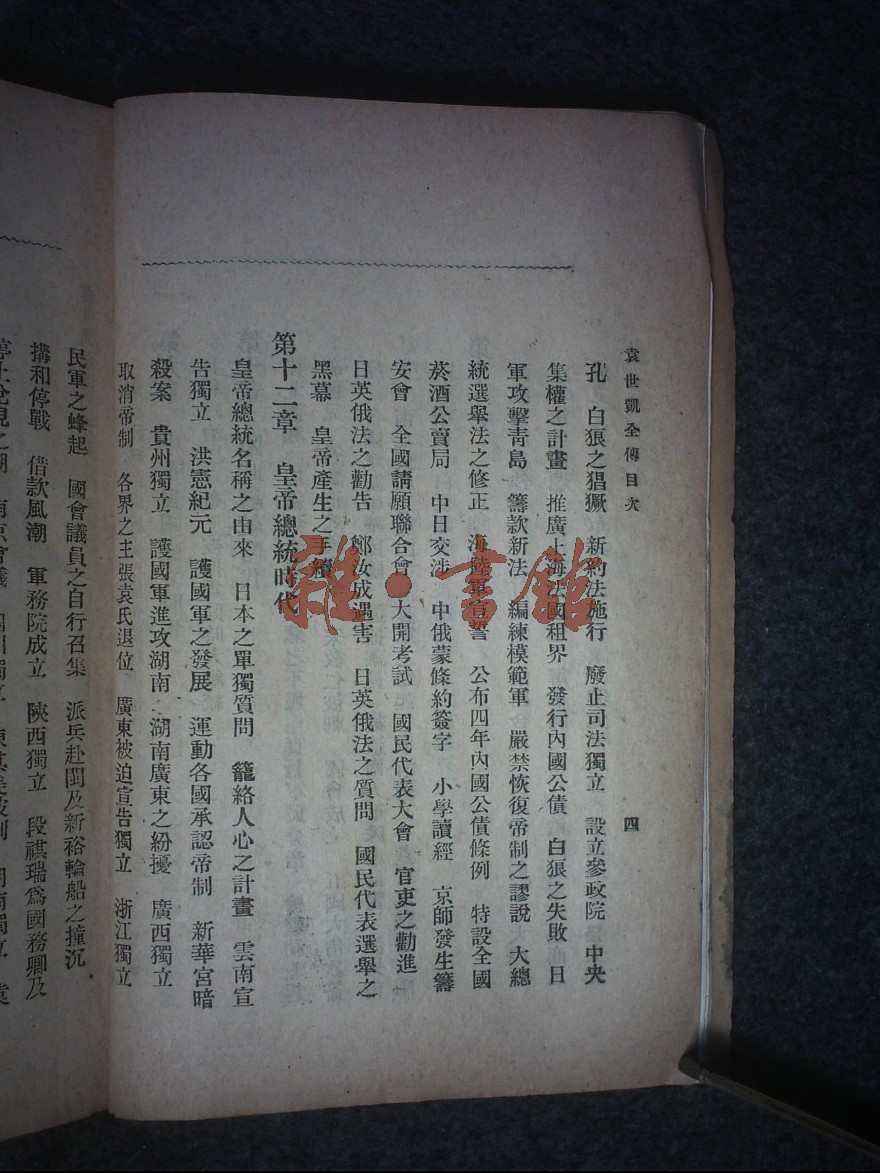 袁世凱全傳目次 四
孔 白狼之猖獗 新約法施行 廢止司法獨立 設立參政院 中央
集權之計畫 推廣上海法國租界 發行內國公債 白狼之失敗 日
軍攻擊靑島 籌款新法 編練模範軍 嚴禁恢復帝制之謬說 大總
統選舉法之修正 海陸軍宣誓 公布四年內國公債條例 特設全國
菸酒公賣局 中日交涉 中俄蒙條約簽字 小學讀經 京師發生籌
安會 全國請願聯合會 大開考試 國民代表大會 官吏之勸進
日英俄法之勸告 鄭汝成遇害 日英俄法之質問 國民代表選舉之
黑幕 皇帝產生之手續
第十二章 皇帝總統時代
皇帝總統名稱之由來 日本之單獨質問 籠絡人心之計畫 雲南宣
告獨立 洪憲紀元 護國軍之發展 運動各國承認帝制 新華宮暗
殺案 貴州獨立 護國軍進攻湖南 湖南廣東之紛擾 廣西獨立
取消帝制 各界之主張袁氏退位 廣東被迫宣告獨立 浙江獨立
民軍之蜂起 國會議員之自行召集 派兵赴閩及新裕輪船之撞沉
搆和停戰 借款風潮 軍務院成立 陝西獨立 段祺瑞爲國務卿及
雜·書館